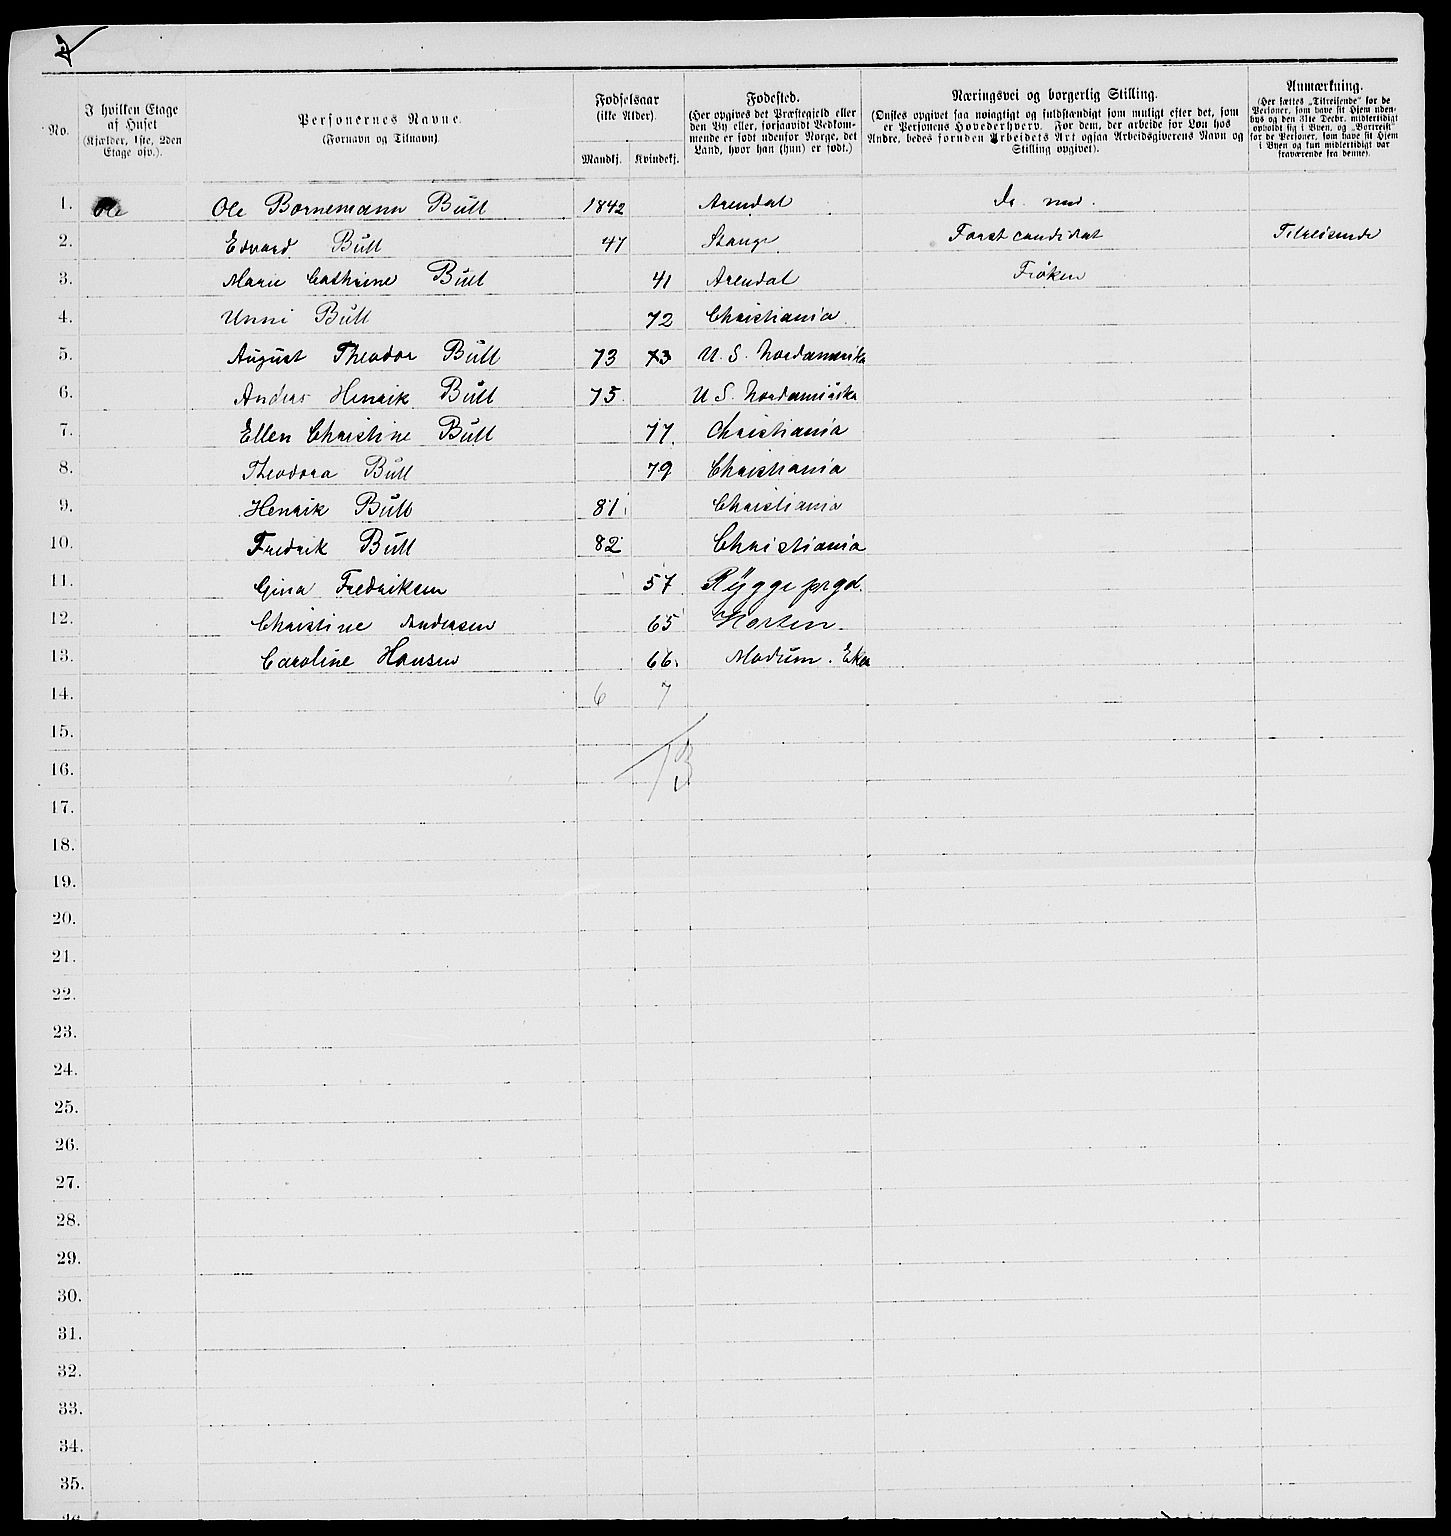 No.
I hvilken Etage
af Huset
(Kjælder, 1ste, 2den
Etage osv.).
Personernes Navne.
(Fornavn og Tilnavn).
Fødselsaar
(ikke Alder).
Mandkj. Kvindekj.
Fødested.
(Her opgives det Præstegjeld eller
den By eller, forsaavidt Vedkom-
mende er født udenfor Norge, det
Land, hvor han (hun) er født.)
Næringsvei og borgerlig Stilling.
(Ønskes opgivet saa nøiagtigt og fuldstændigt som muligt efter det, som
er Personens Hovederhverv. For dem, der arbeide for Løn hos
Andre, bedes foruden Arbeidets Art ogsaa Arbeidsgiverens Navn og
Stilling opgivet).
Anmærkning.
(Her sættes „Tilreisende“ for de
Personer, som have sit Hjem uden-
bys og den 31te Decbr. midlertidigt
opholdt sig i Byen, og „Bortreist“
for de Personer, som have sit Hjem
i Byen og kun midlertidigt var
fraværende fra denne).
1. Ole Ole Bornemann Bull 1842 Arendal Dr. med.
2. Edvard Bull 47 Stange Forstcandidat Tilreisende
3. Marie Cathrine Bull 41 Arendal Frøken
4. Unni Bull 72 Christiania
5. August Theodor Bull 73 73 U. S. Nordamerika
6. Anders Henrik Bull 75 U S. Nordamerika
7. Ellen Christine Bull 77. Christiania
8. Theodora Bull 79 Christiania
9. Henrik Bull 81 Christiania
10. Fredrik Bull 82 Christiania
11. Gina Fredriksen 57 Rygge prgd.
12. Christine Andersen 65 Horten.
13. Caroline Hansen 66. Modum. Eker
14. 6 7
15.
16. 13
17.
18.
19.
20.
21.
22.
23.
24.
25.
26.
27.
28.
29.
30.
31.
32.
33.
34.
35.